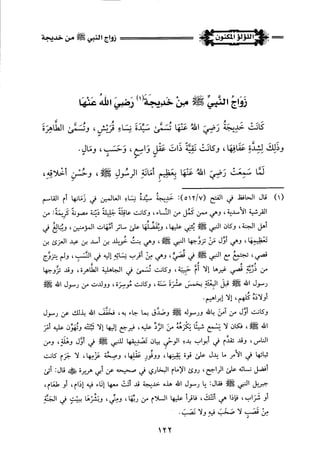 اللؤلؤ المكنون
زواج النبي ﷺ من خديجة
زَوَاجُ النَّبِيِّ ﷺ مِنْ خَدِيجَةَ(١) رَضِيَ اللهُ عَنْهَا
كَانَتْ خَدِيجَةُ رَضِيَ اللهُ عَنْهَا تُسَمَّى سَيِّدَةَ نِسَاءِ قُرَيْشٍ، وَتُسَمَّى الطَّاهِرَةَ
وَذَلِكَ لِشِدَّةِ عَفَافِهَا، وَكَانَتْ تَقِيَّةً ذَاتَ عَقْلٍ وَاسِعٍ، وَحَسَبٍ، وَمَالٍ.
لَمَّا سَمِعَتْ رَضِيَ اللهُ عَنْهَا بِعَظِيمِ أَمَانَةِ الرَّسُولِ ﷺ، وَحُسْنِ أَخْلَاقِهِ،
(١) قال الحافظ في الفتح (٥١٢/٧): خديجةُ سيِّدةُ نِسَاءِ العالمين في زَمَانِها أم القاسم
القرشية الأسدية، وهي ممن كَمُلَ من النساء، وكانت عاقِلَةً جَلِيلَةً دَيِّنَةً مصونةً كَرِيمَةً، من
أهل الجنة، وكان النبي ﷺ يُثني عليها، ويُفَضِّلُهَا على سائر أمَّهات المؤمنين، ويُبالغ في
تَعظِيمِها، وهي أوَّل مَنْ تزوجها النبي ﷺ، وهي بنت خُويلد بن أسد بن عبد العزى بن
قصي، تجتمع مع النبي ﷺ في قُصي، وهي مِنْ أقرب نِسَائه إليه في النَّسب، ولم يتزوج
من ذُرِّيَّةِ قُصي غيرها إلا أُم حَبِيبة، وكانت تُسمَّى في الجاهلية الطاهرة، وقد تزوَّجها
رسول الله ﷺ قبل البِعثة بخمس عشْرَةَ سَنة، وكانت مُوسِرَة، وولدت من رسول الله ﷺ
أولادَهُ كُلهم، إلا إبراهيم.
وكانت أوَّل من آمن بالله ورسوله ﷺ وصدَّق بما جاء به، فخفَّف الله بذلك عن رسول
الله ﷺ، فكان لا يَسمع شيئًا يَكْرَهُهُ مِنَ الرَّد عليه، فيرجع إليها إلا تُثَبِّتُه وتُهَوِّن عليه أمْرَ
الناس، وقد تقدَّم في أبواب بدء الوحي بيان تَصديقها للنبي ﷺ في أوَّل وَهْلة، ومن
ثباتها في الأمر ما يدل على قوة يقينها، ووفُور عَقلها، وصِحَّة عَزمِها، لا جَرَمَ كانت
أفضل نسائه على الراجح، روى الإمام البخاري في صحيحه عن أبي هريرة رضي الله عنه قال: أتى
جبريل النبي ﷺ فقال: يا رسول الله هذه خديجة قد أتت معها إنَاء فيه إدَام، أو طعام،
أو شراب، فإذا هي أتَتْكَ، فاقرأ عليها السلام من ربها، ومني، وبشِّرها ببيت في الجنَّة
مِنْ قَصَب لا صَخَب فيه ولا نَصَب.
١٢٢